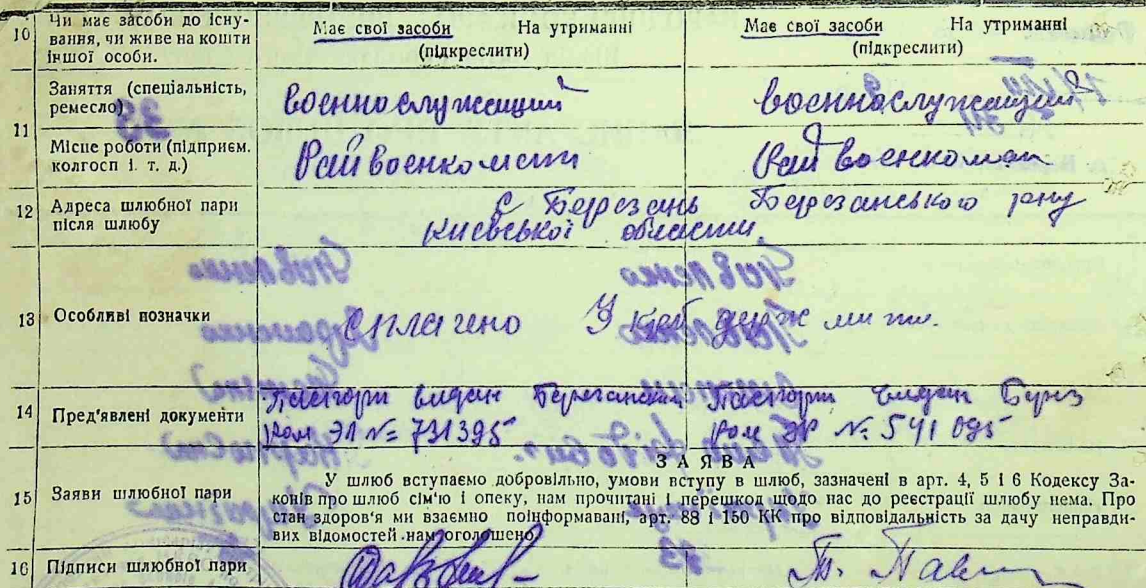 10 Чи має засоби до існування, чи живе на кошти іншої особи. Має свої засоби На утриманні (підкреслити) Має свої засоби На утриманні (підкреслити)
11 Заняття (спеціальність, ремесло) военнослужащий военнослужащий
Місце роботи (підприєм. колгосп і. т. д.) Райвоенкомат Райвоенкомат
12 Адреса шлюбної пари після шлюбу с Березань Березанського р-ну
Київської области.
13 Особливі позначки сплачено 3 крб держ мито.
14 Пред'явлені документи Паспорт видан Березанским Паспорт видан
ром ЭЛ № 731395 ром № 541095
З А Я В А
15 Заяви шлюбної пари У шлюб вступаємо добровільно, умови вступу в шлюб, зазначені в арт. 4, 5 і 6 Кодексу За-
конів про шлюб сім'ю і опеку, нам прочитані і перешкод щодо нас до реєстрації шлюбу нема. Про
стан здоров'я ми взаємно поінформавані, арт. 88 і 150 КК про відповідальність за дачу неправди-
вих відомостей нам оголошено
16 Підписи шлюбної пари